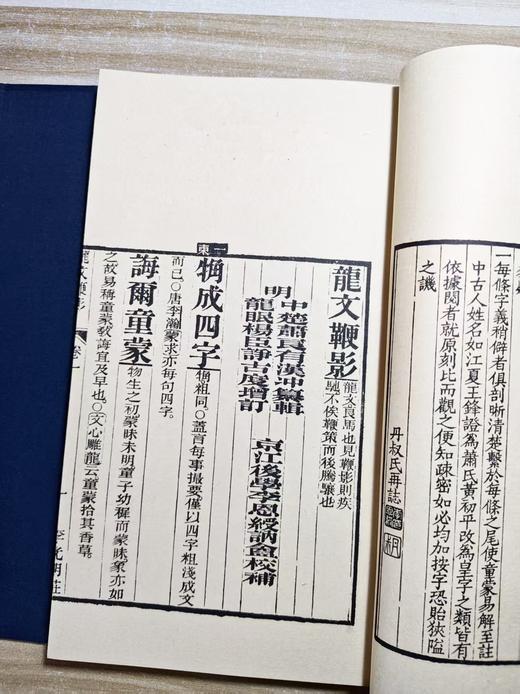 一每條字義稍僻者俱剖晰清楚繫於每條之尾使童蒙易解至註
中古人姓名如江夏王鋒證為蕭氏黃初平改為皇字之類皆有
依據閱者就原刻比而觀之便知疎密如必均加按字恐貽狹隘
之譏
丹叔氏再誌
龍文鞭影
龍文良馬也見鞭影則疾
馳不俟鞭策而後騰驤也
明
中楚蕭良有漢冲纂輯
龍眠楊臣諍古度增訂
京江後學李恩綬訥盦校補
一東
觕成四字
觕粗同○蓋言每事撮要僅以四字粗淺成文
而已○唐李瀚蒙求亦每句四字。
誨爾童蒙
物生之初蒙昧未明童子幼稚而蒙昧象亦如
之故易稱童蒙教誨宜及早也○文心雕龍云童蒙拾其香草。
龍文鞭影
卷一
一
李光明莊